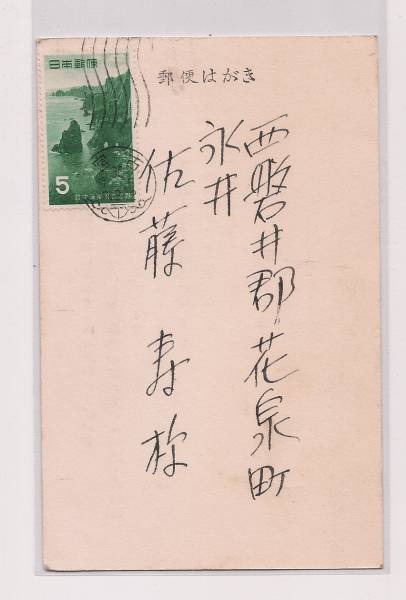 日本郵便
5
郵便はがき
西磐井郡花泉町
永井
佐藤寿